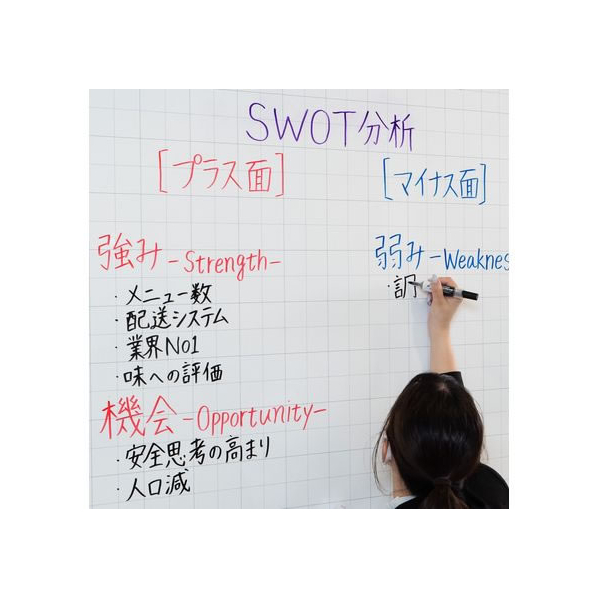 SWOT分析
[プラス面]
[マイナス面]
強み-Strength-
・メニュー数
・配送システム
・業界No1
・味への評価
弱み-Weaknes
機会-Opportunity-
・安全思考の高まり
・人口減